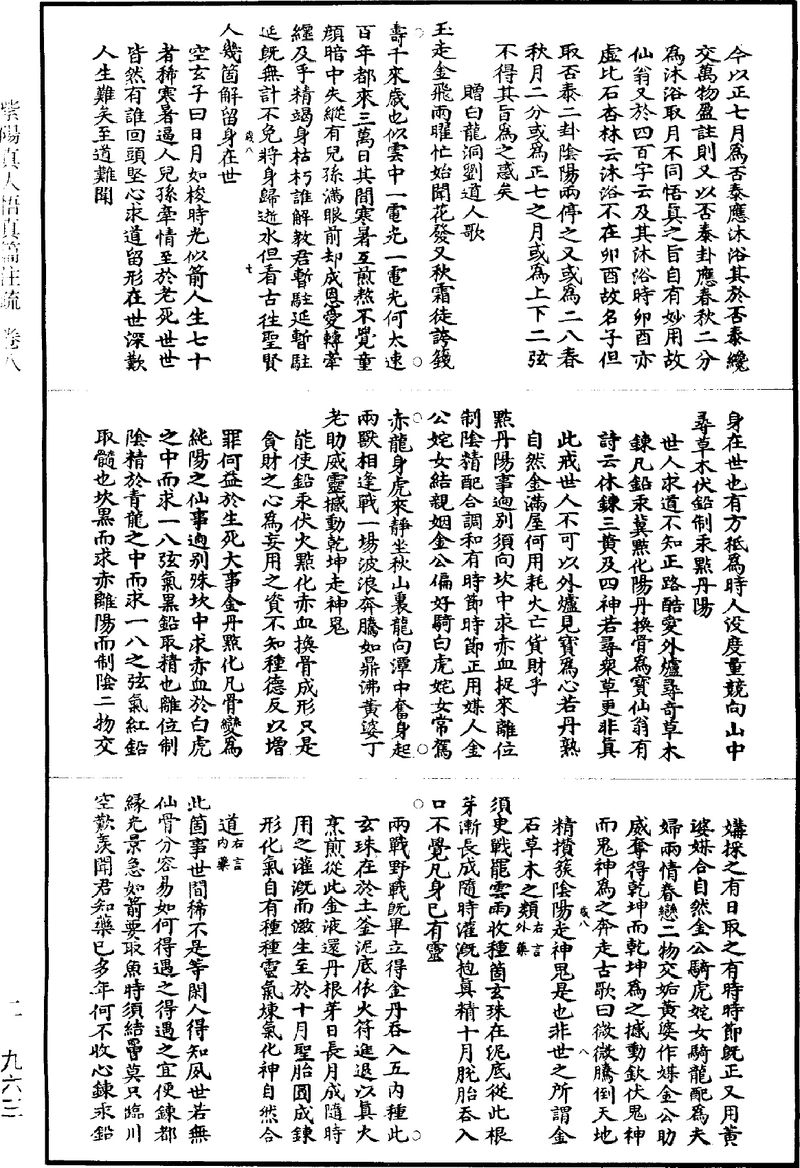 今以正七月為否泰應沐浴其於否泰纔
交萬物盈註則又以否泰卦應春秋二分
為沐浴取月不同悟真之旨自有妙用故
仙翁又於四百字云及其沐浴時卯酉亦
虛比石杏林云沐浴不在卯酉故名子但
取否泰二卦陰陽兩停之又或為二八春
秋月二分或為正七之月或為上下二弦
不得其旨為之惑矣
贈白龍洞劉道人歌
玉走金飛兩曜忙始聞花發又秋霜徒誇籛
壽千來歲也似雲中一電光一電光何太速
百年都來三萬日其間寒暑互煎熬不覺童
顏暗中失縱有兒孫滿眼前却成恩愛轉牽
纏及乎精竭身枯朽誰解教君暫駐延暫駐
延旣無計不免將身歸逝水但看古徃聖賢
人幾箇解留身在世
歲八 七
空玄子曰日月如梭時光似箭人生七十
者稀寒暑逼人兒孫牽情至於老死世世
皆然有誰回頭堅心求道留形在世深歎
人生難矣至道難聞
身在世也有方秪為時人没度量競向山中
尋草木伏鉛制汞點丹陽
世人求道不知正路酷愛外爐尋竒草木
鍊凡鉛汞冀點化陽丹換骨為寶仙翁有
詩云休鍊三黄及四神若尋衆草更非真
此戒世人不可以外爐見寶為心若丹熟
自然金滿屋何用耗火亡貨財乎
點丹陽事逈别須向坎中求赤血捉來離位
制陰精配合調和有時節時節正用媒人金
公姹女結親姻金公偏好騎白虎姹女常駕
赤龍身虎來靜坐秋山裏龍向潭中奮身起
兩獸相逢戰一場波浪奔騰如鼎沸黄婆丁
老助威靈撼動乾坤走神鬼
能使鉛汞伏火點化赤血換骨成形只是
貪財之心為妄用之資不知種德反以增
罪何益於生死大事金丹點化凡骨變為
純陽之仙事逈别殊坎中求赤血於白虎
之中而求一八弦氣黒鉛取精也離位制
陰精於青龍之中而求一八之弦氣紅鉛
取髓也坎黒而求赤離陽而制陰二物交
媾採之有日取之有時時節旣正又用黄
婆媒合自然金公騎虎姹女騎龍配為夫
婦兩情眷戀二物交姤黄婆作媒金公助
威奪得乾坤而乾坤為之撼動欽伏鬼神
而鬼神為之奔走古歌曰微微騰倒天地
精攢簇陰陽走神鬼是也非世之所謂金
歲八 八
石草木之類右言外藥
須臾戰罷雲雨收種箇玄珠在泥底從此根
芽漸長成隨時灌溉抱真精十月脫胎吞入
口不覺凡身已有靈
兩戰野戰旣畢立得金丹吞入五内種此
玄珠在於土釜泥底依火符進退以真火
烹煎從此金液還丹根芽日長月成隨時
用之灌溉而滋生至於十月聖胎圓成鍊
形化氣自有種種靈氣煉氣化神自然合
道右言内藥
此箇事世間稀不是等閑人得知夙世若無
仙骨分容易如何得遇之得遇之宜便鍊都
緣光景急如箭要取魚時須結罾莫只臨川
空歎羨聞君知藥已多年何不收心鍊汞鉛
紫陽真人悟真篇注疏 卷八
二 九六三